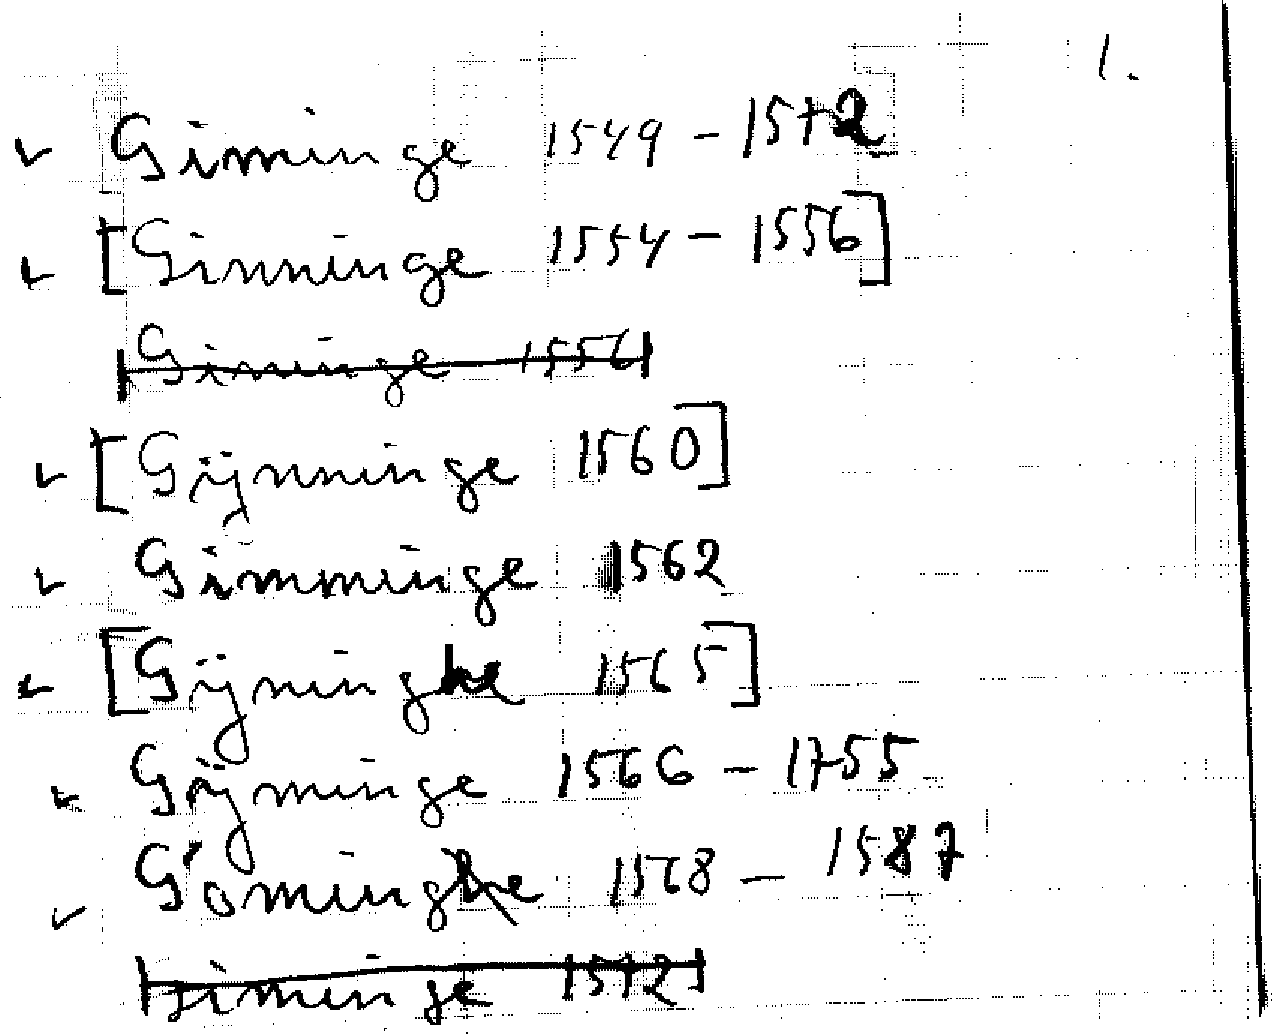 1.
✓ Giminge 1549 – 1572
✓ [Ginninge 1554 – 1556]
Giminge 1556
✓ [Gÿnninge 1560]
✓ Gimminge 1562
✓ [Gÿninghe 1565]
✓ Gÿminge 1566 – 1755
✓ Göminghe 1568 – 1587
Giminge 1572